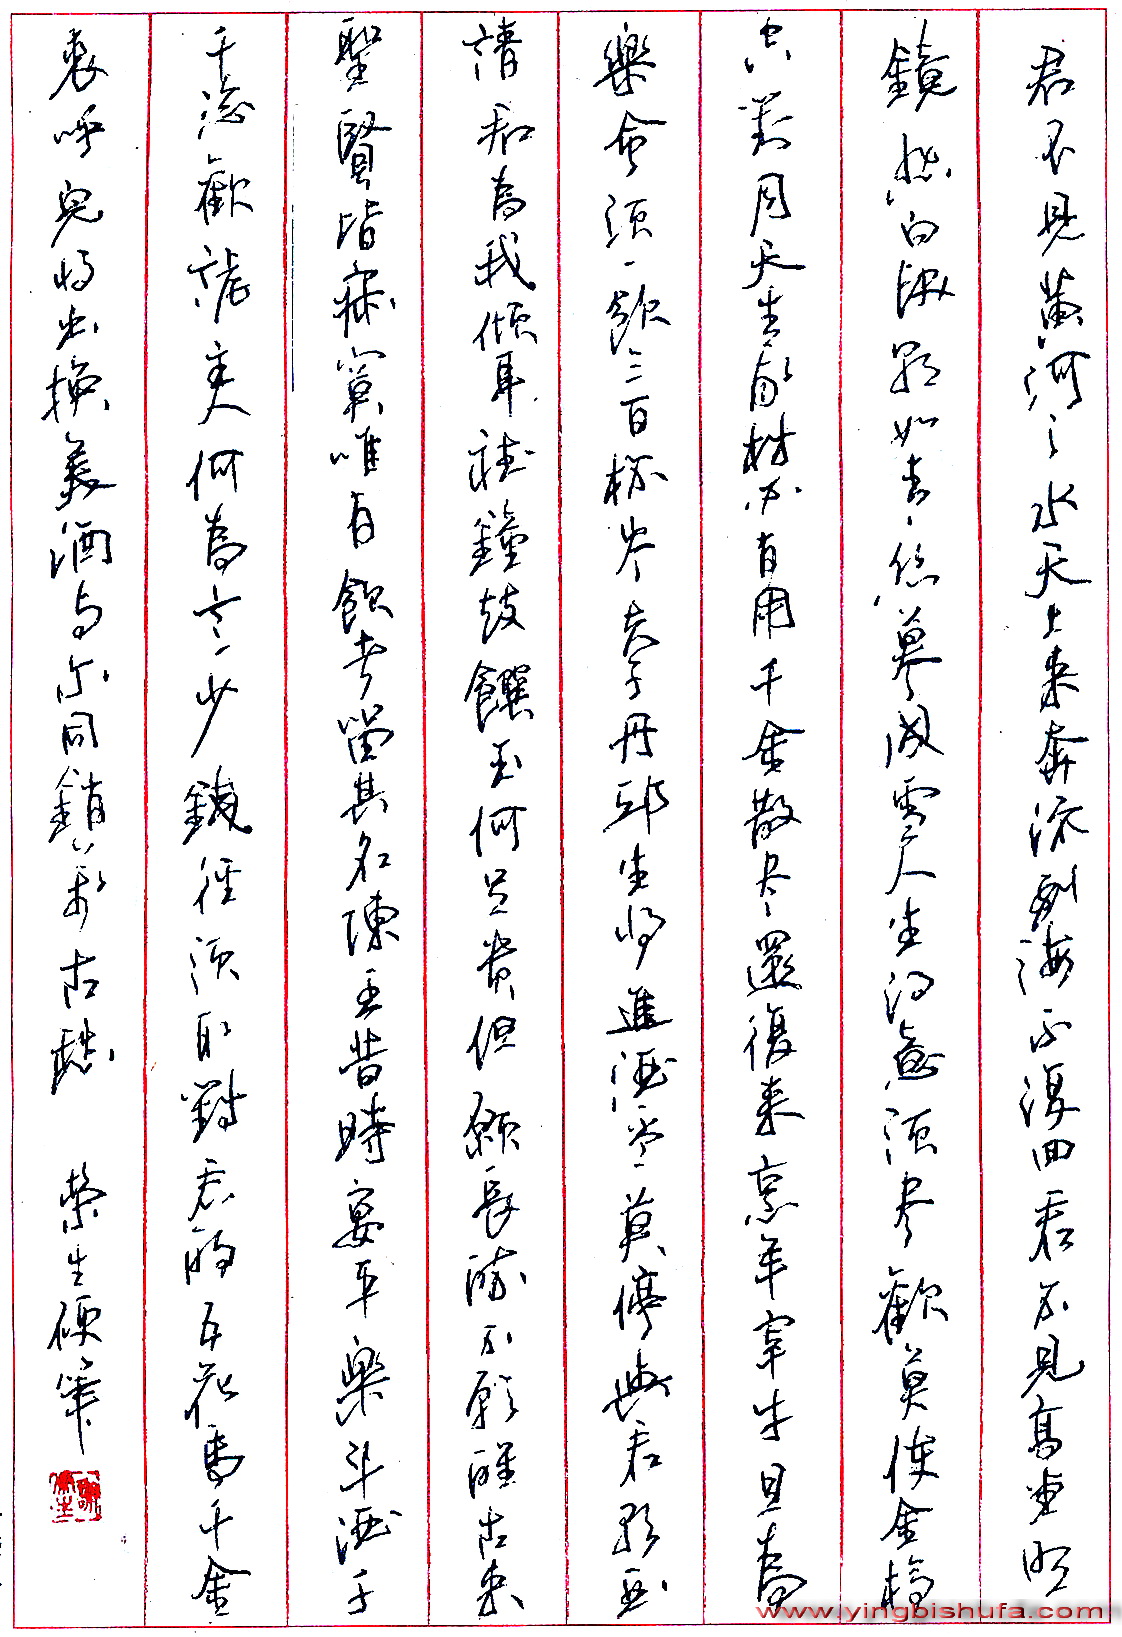 君不見黃河之水天上來奔流到海不復回君不見高堂明
鏡悲白髮朝如青絲暮成雪人生得意須盡歡莫使金樽
空對月天生我材必有用千金散盡還復來烹羊宰牛且為
樂會須一飲三百杯岑夫子丹邱生將進酒杯莫停與君歌一曲
請君為我傾耳聽鐘鼓饌玉何足貴但願長醉不願醒古來
聖賢皆寂寞唯有飲者留其名陳王昔時宴平樂斗酒十
千恣歡謔主人何為言少錢徑須取對君酌五花馬千金
裘呼兒將出換美酒與爾同銷萬古愁 榮生硬筆
www.yingbishufa.com